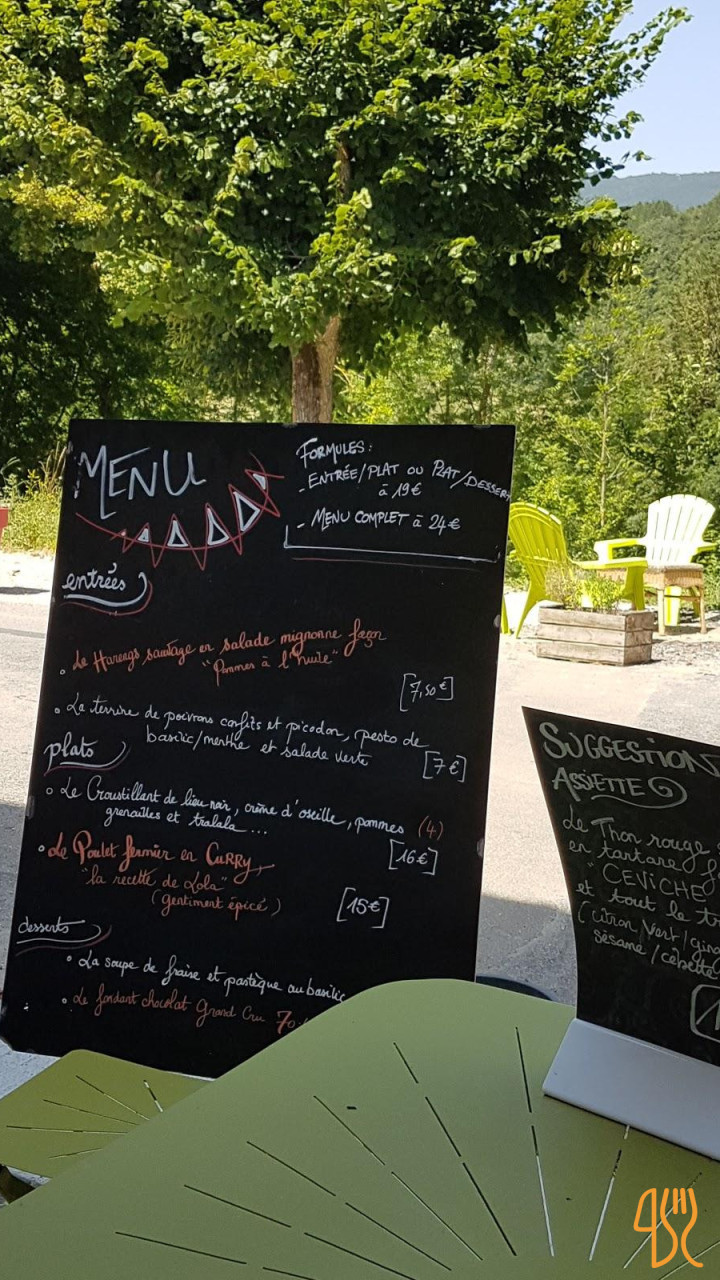 MENU
FORMULES :
- ENTRÉE/PLAT OU PLAT/DESSERT
à 19€
- MENU COMPLET à 24€
entrées
• Le Harengs sauvage en salade mignonne façon
"Pommes à l'huile"
[7,50€]
• La terrine de poivrons confits et picodon, pesto de
basilic/menthe et salade verte
[7€]
plats
• Le Croustillant de lieu noir, crème d'oseille, pommes (4)
grenailles et tralala...
[16€]
• Le Poulet fermier en CURRY
"la recette de Lola"
(gentiment épicé)
[15€]
desserts
• La soupe de fraise et pastèque au basilic
• Le fondant chocolat Grand Cru 70
SUGGESTION
ASSIETTE
Le Thon rouge
en tartare
"CEVICHE
et tout le
(citron Vert/
sésame/cébette